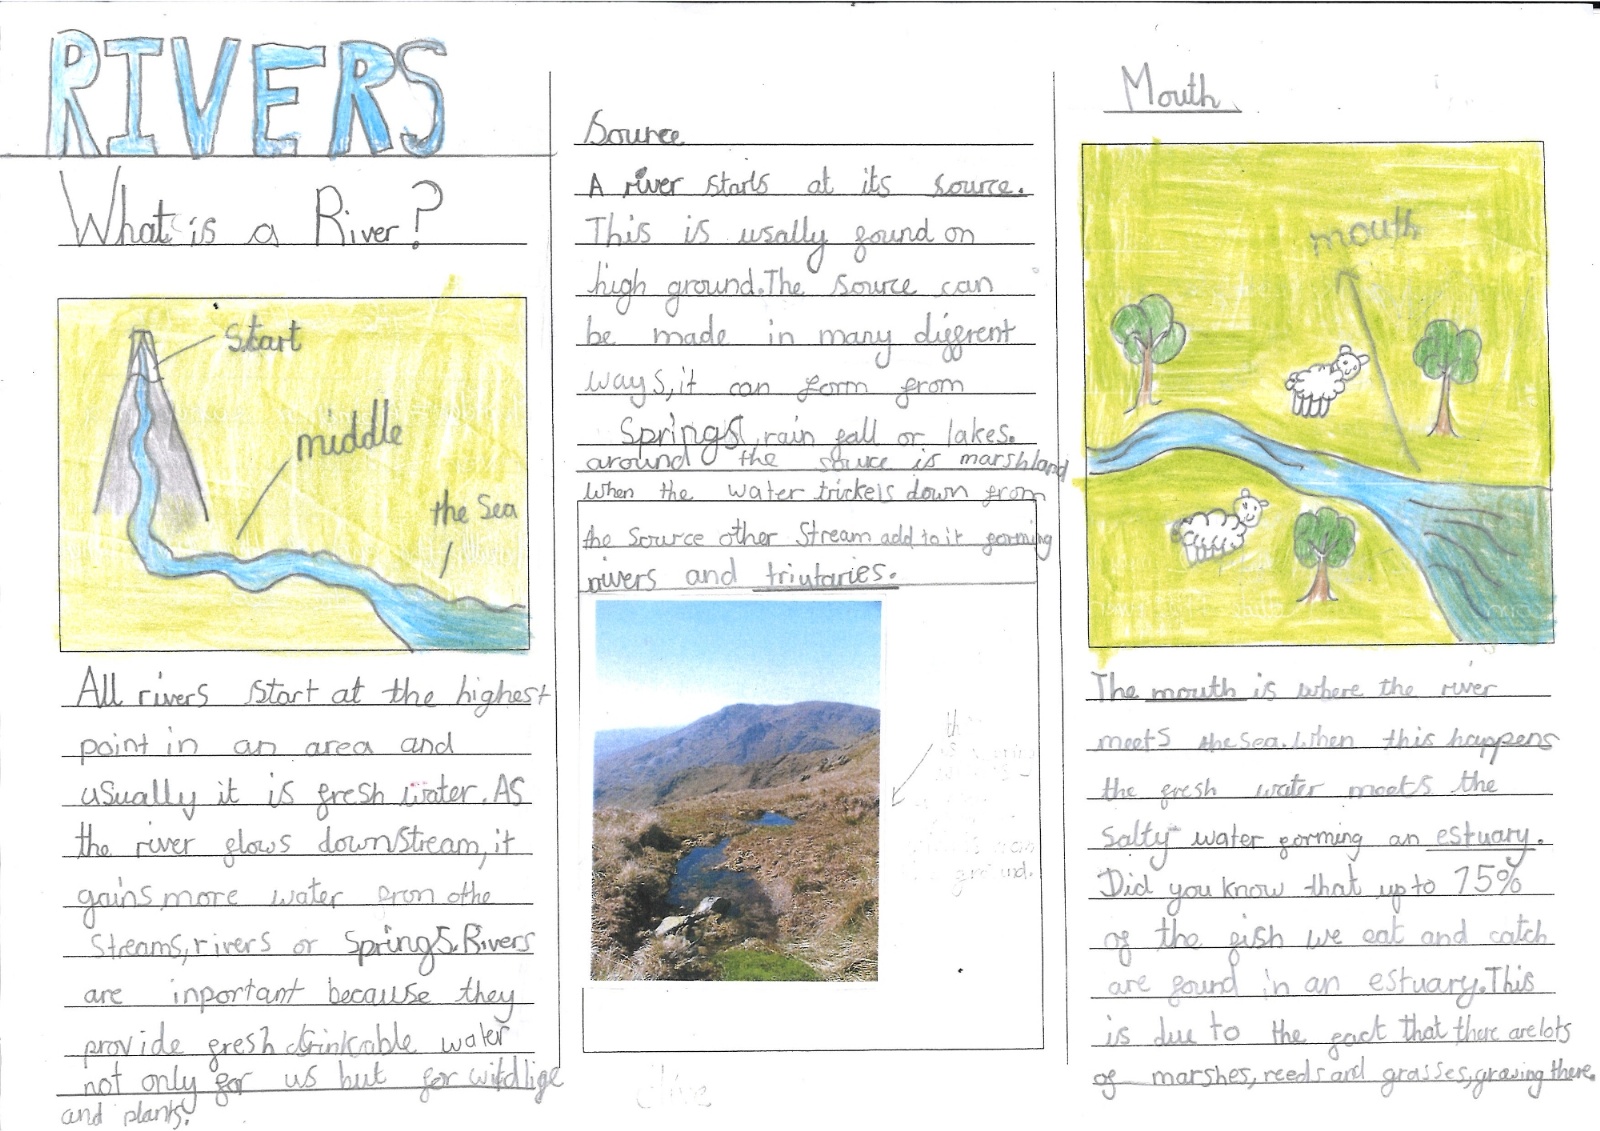 RIVERS
What is a River?
start
middle
the Sea
All rivers start at the highest
point in an area and
usually it is fresh water. As
the river flows downstream, it
gains more water from othe
streams, rivers or springs. Rivers
are inportant because they
provide fresh drinkable water
not only for us but for wildlife
and plants.
Source
A river starts at its source.
This is usally found on
high ground. The source can
be made in many diffrent
ways, it can form from
Springs, rain fall or lakes.
around the source is marshland
when the water trickels down from
the source other stream add to it forming
rivers and triutaries.
the
ground.
Clive
Mouth
mouth
The mouth is where the river
meets the sea. When this happens
the fresh water meets the
salty water forming an estuary.
Did you know that up to 75%
of the fish we eat and catch
are found in an estuary. This
is due to the fact that there are lots
of marshes, reeds and grasses, growing there.